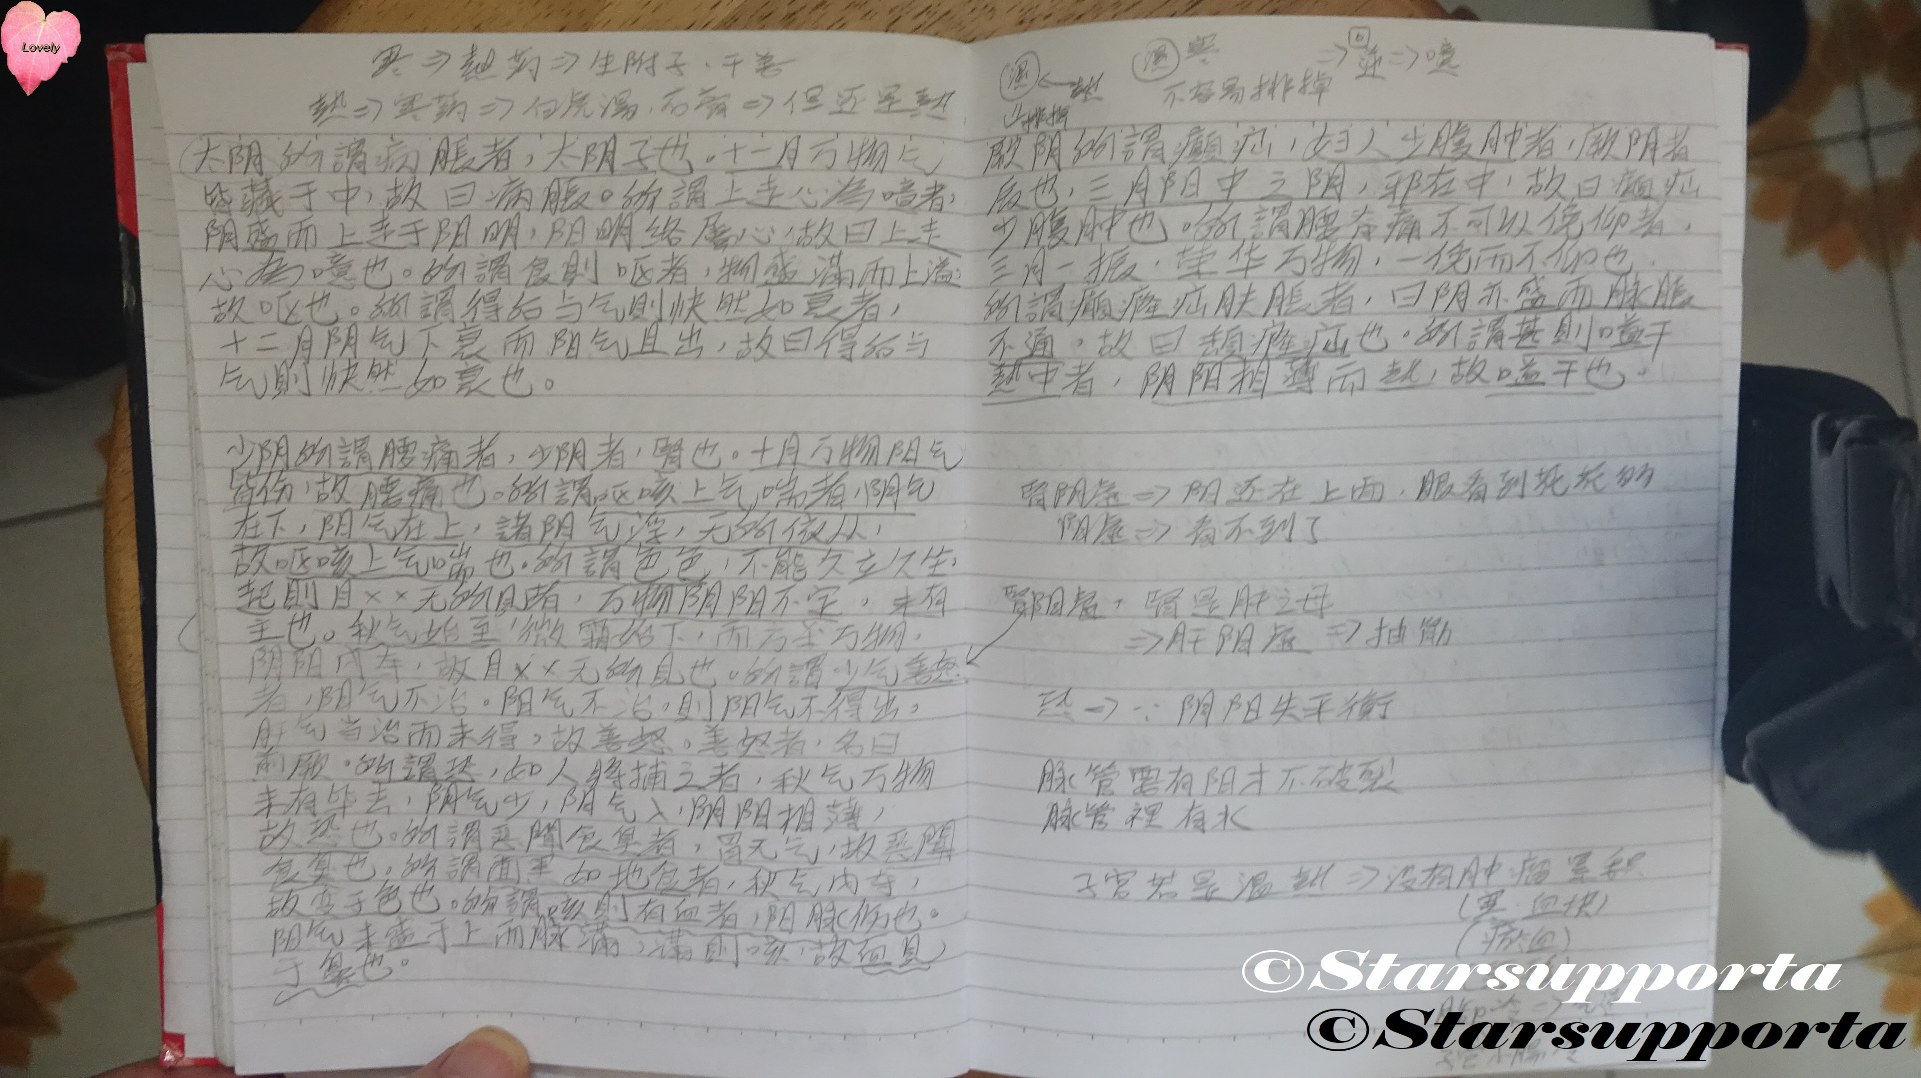 Lovely
寒⇒熱药⇒生附子、干姜
熱⇒寒药⇒白虎湯、石膏⇒但还是熱
(太阴所謂病脹者,太阴子也。十一月万物气
皆藏于中,故曰病脹。所謂上走心為噫者,
阴盛而上走于阳明,阳明络屬心,故曰上走
心為噫也。所謂食則呕者,物盛滿而上溢
故呕也。所謂得后与气則快然如衰者,
十二月阴气下衰而阳气且出,故曰得后与
气則快然如衰也。
少阴所謂腰痛者,少阴者,腎也。十月万物阳气
皆伤,故腰痛也。所謂呕咳上气喘者,阴气
在下,阳气在上,諸阳气浮,无所依从,
故呕咳上气喘也。所謂色色,不能久立久坐,
起則目××无所見者,万物阴阳不定,未有
主也。秋气始至,微霜始下,而方杀万物,
阴阳内夺,故目××无所見也。所謂少气善怒
者,阳气不治。阳气不治,則阳气不得出,
肝气当治而未得,故善怒。善怒者,名曰
煎厥。所謂恐,如人將捕之者,秋气万物
未有毕去,阴气少,阳气入,阴阳相薄,
故恐也。所謂恶聞食臭者,胃无气,故恶聞
食臭也。所謂面黑如地色者,秋气内夺,
故变于色也。所謂咳則有血者,阳脉伤也。
阳气未盛于上而脉滿,滿則咳,故血見
于鼻也。
濕 ← 熱
排掉
濕 寒
不容易排掉
⇒ 逆⇒噫
厥阴所謂癲疝,妇人少腹肿者,厥阴者
辰也,三月阳中之阴,邪在中,故曰癲疝
少腹肿也。所謂腰脊痛不可以俛仰者,
三月一振,荣华万物,一俛而不仰也。
所謂癲癃疝肤脹者,曰阴亦盛而脉脹
不通,故曰癲癃疝也。所謂甚則嗌干
熱中者,阴阳相薄而熱,故嗌干也。
腎阴虛⇒阳还在上面,眼看到死死的
阳虛⇒看不到了
腎阳虛,腎是肝之母
⇒肝阴虛⇒抽筋
恐⇒∵阴阳失平衡
脉管需有阳才不破裂
脉管裡有水
子宮若是溫熱⇒没有肿瘤累积
(寒血块)
(瘀血)
©Starsupporta
©Starsupporta